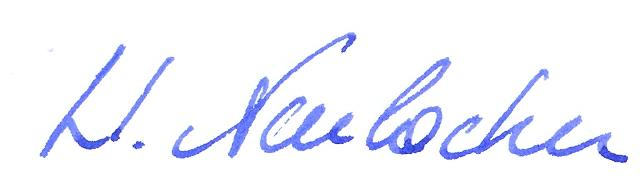 H. Neulocher